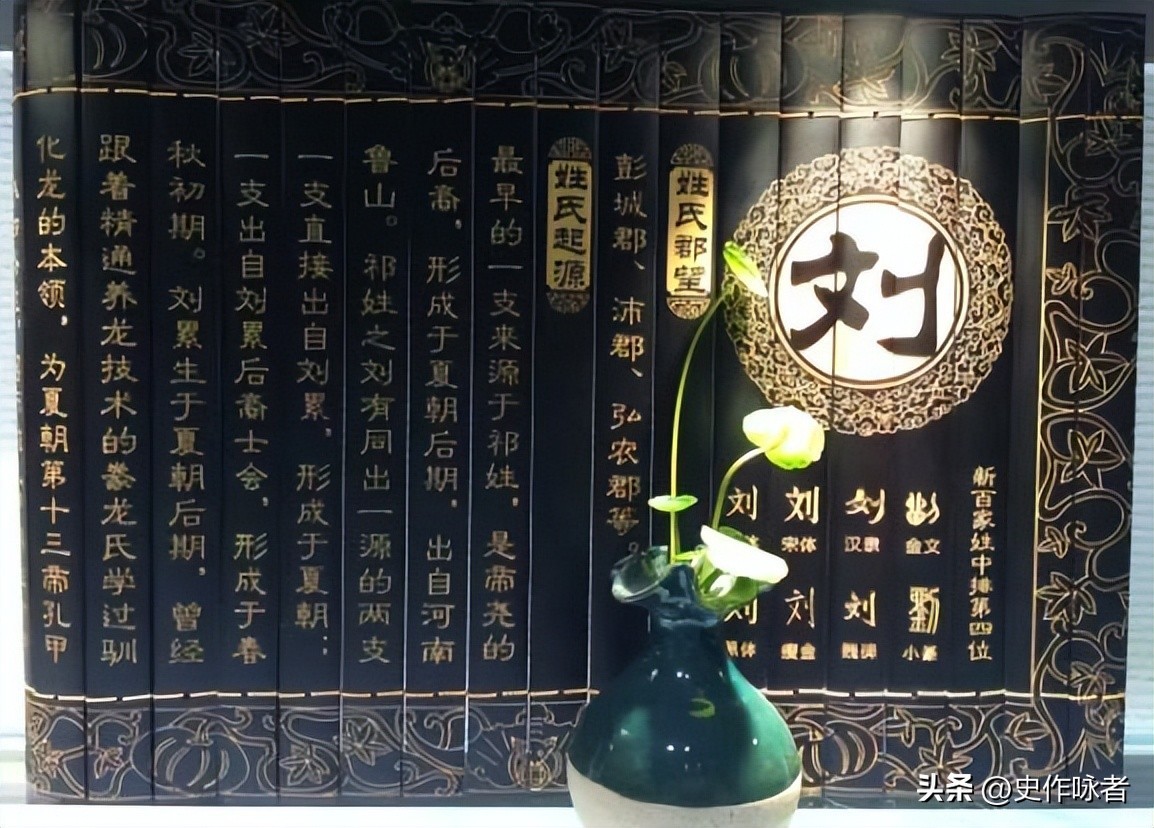 刘
新百家姓中排第四位
劉
金文
刘
汉隶
刘
宋体
刘
劉
小篆
刘
魏碑
刘
瘦金
刘
体
姓氏郡望
彭城郡、沛郡、弘农郡等。
姓氏起源
最早的一支来源于祁姓，是帝尧的
后裔，形成于夏朝后期，出自河南
鲁山。祁姓之刘有同出一源的两支
一支直接出自刘累，形成于夏朝；
一支出自刘累后裔士会，形成于春
秋初期。刘累生于夏朝后期，曾经
跟着精通养龙技术的豢龙氏学过驯
化龙的本领，为夏朝第十三帝孔甲
头条 @史作咏者